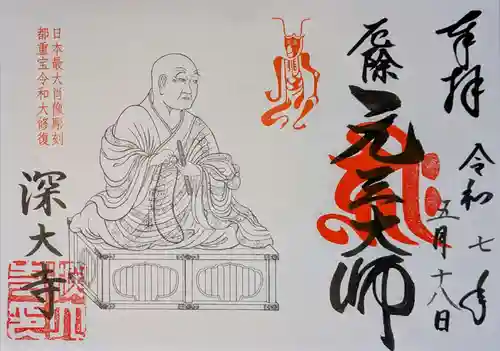 奉拝
令和七年
五月十八日
厄除
元三大師
日本最大肖像彫刻
都重宝令和大修復
深大寺